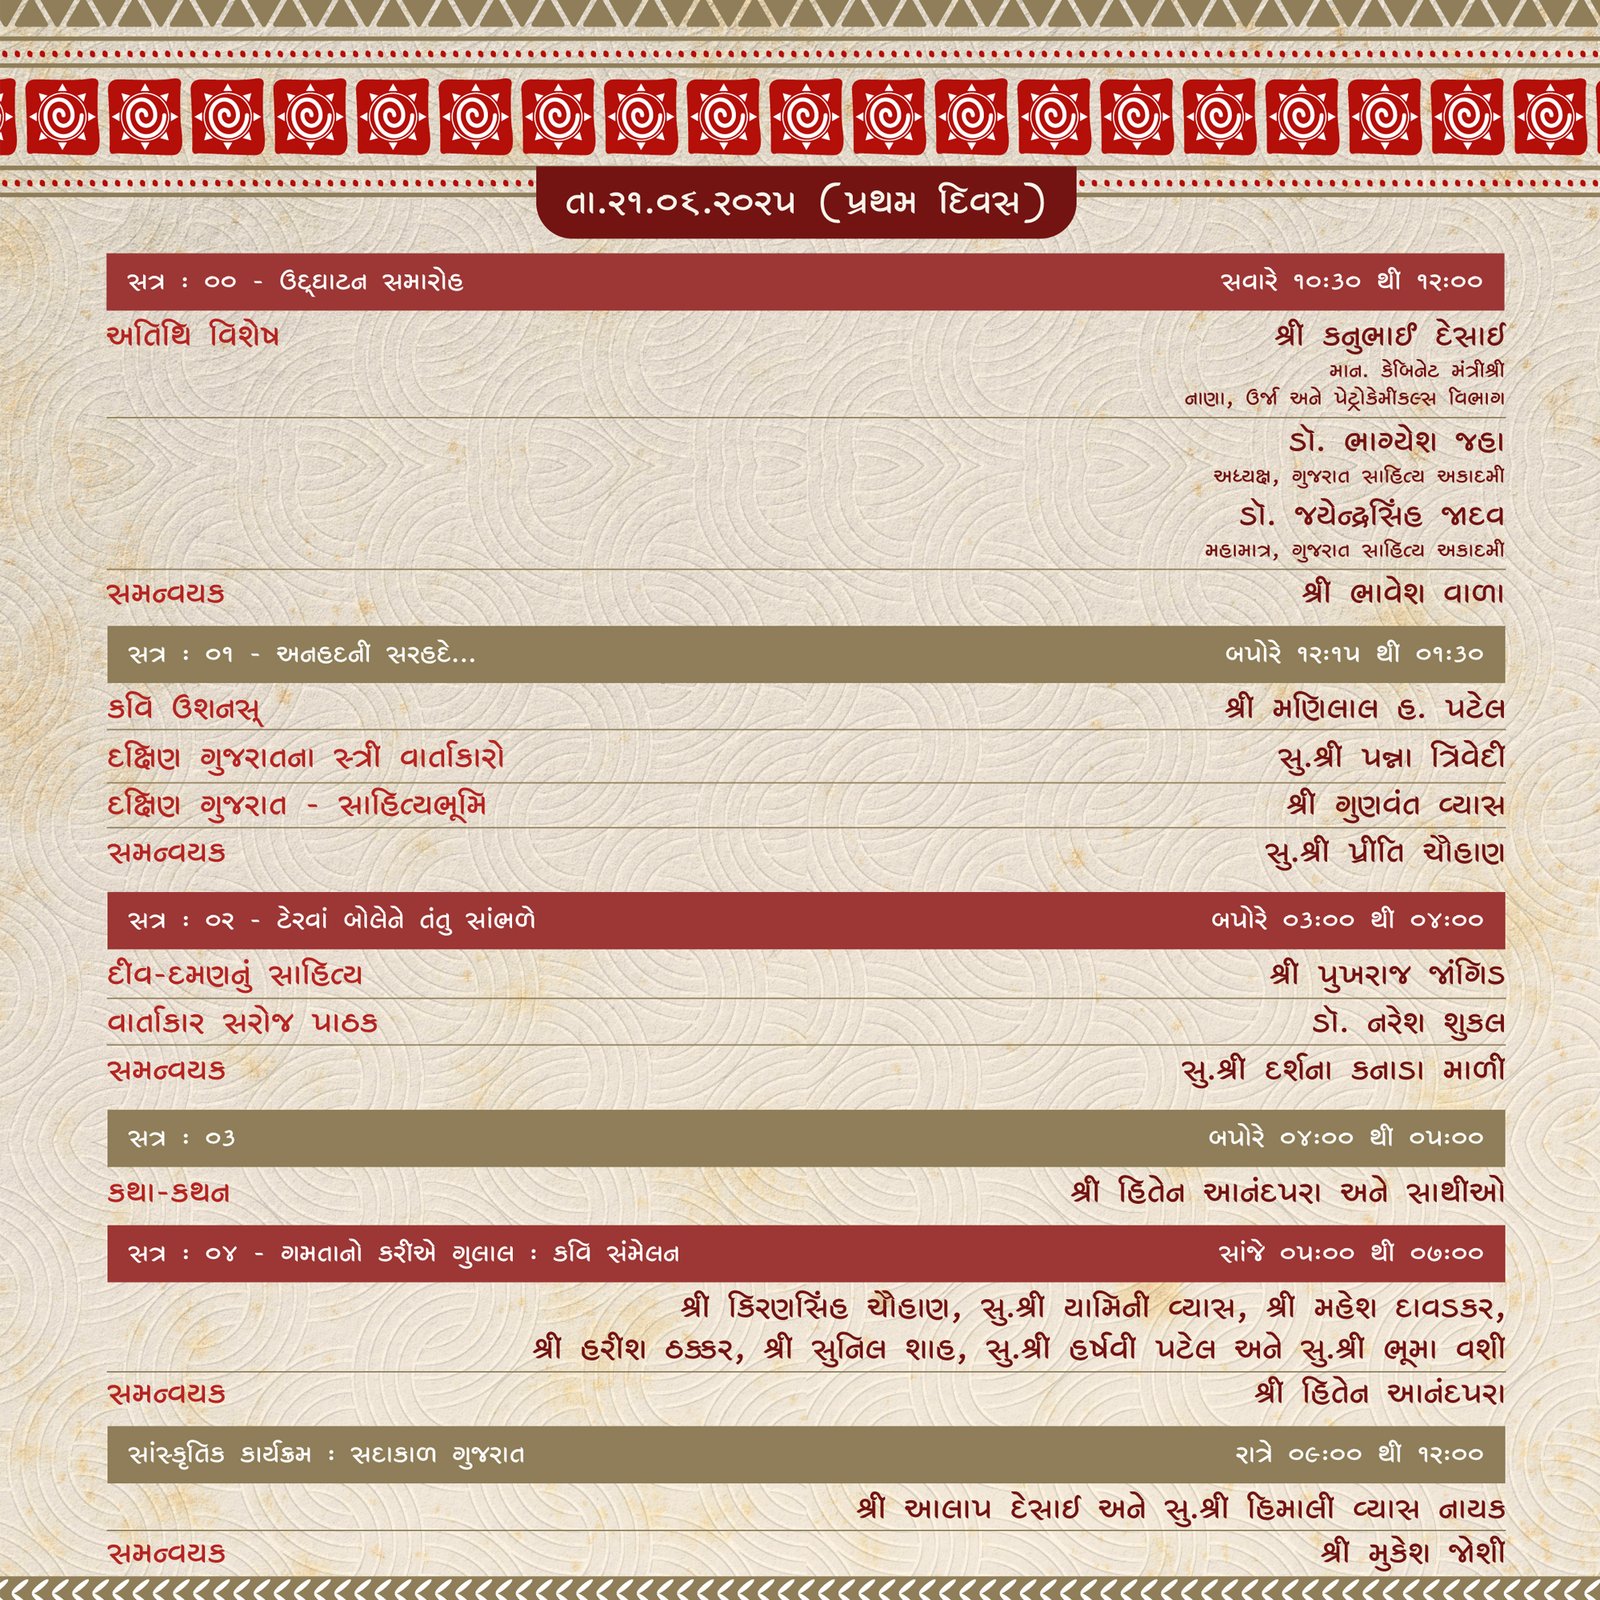 તા.૨૧.૦૬.૨૦૨૫ (પ્રથમ દિવસ)
સત્ર : ૦૦ - ઉદ્ઘાટન સમારોહ સવારે ૧૦:૩૦ થી ૧૨:૦૦
અતિથિ વિશેષ શ્રી કનુભાઈ દેસાઈ
માન. કેબિનેટ મંત્રીશ્રી
નાણા, ઉર્જા અને પેટ્રોકેમીકલ્સ વિભાગ
ડૉ. ભાગ્યેશ જહા
અધ્યક્ષ, ગુજરાત સાહિત્ય અકાદમી
ડૉ. જયેન્દ્રસિંહ જાદવ
મહામાત્ર, ગુજરાત સાહિત્ય અકાદમી
સમન્વયક શ્રી ભાવેશ વાળા
સત્ર : ૦૧ - અનહદની સરહદે... બપોરે ૧૨:૧૫ થી ૦૧:૩૦
કવિ ઉશનસ્ શ્રી મણિલાલ હ. પટેલ
દક્ષિણ ગુજરાતના સ્ત્રી વાર્તાકારો સુ.શ્રી પન્ના ત્રિવેદી
દક્ષિણ ગુજરાત - સાહિત્યભૂમિ શ્રી ગુણવંત વ્યાસ
સમન્વયક સુ.શ્રી પ્રીતિ ચૌહાણ
સત્ર : ૦૨ - ટેરવાં બોલેને તંતુ સાંભળે બપોરે ૦૩:૦૦ થી ૦૪:૦૦
દીવ-દમણનું સાહિત્ય શ્રી પુખરાજ જાંગિડ
વાર્તાકાર સરોજ પાઠક ડૉ. નરેશ શુકલ
સમન્વયક સુ.શ્રી દર્શના કનાડા માળી
સત્ર : ૦૩ બપોરે ૦૪:૦૦ થી ૦૫:૦૦
કથા-કથન શ્રી હિતેન આનંદપરા અને સાથીઓ
સત્ર : ૦૪ - ગમતાનો કરીએ ગુલાલ : કવિ સંમેલન સાંજે ૦૫:૦૦ થી ૦૭:૦૦
શ્રી કિરણસિંહ ચૌહાણ, સુ.શ્રી યામિની વ્યાસ, શ્રી મહેશ દાવડકર,
શ્રી હરીશ ઠક્કર, શ્રી સુનિલ શાહ, સુ.શ્રી હર્ષવી પટેલ અને સુ.શ્રી ભૂમા વશી
સમન્વયક શ્રી હિતેન આનંદપરા
સાંસ્કૃતિક કાર્યક્રમ : સદાકાળ ગુજરાત રાત્રે ૦૯:૦૦ થી ૧૨:૦૦
શ્રી આલાપ દેસાઈ અને સુ.શ્રી હિમાલી વ્યાસ નાયક
સમન્વયક શ્રી મુકેશ જોશી